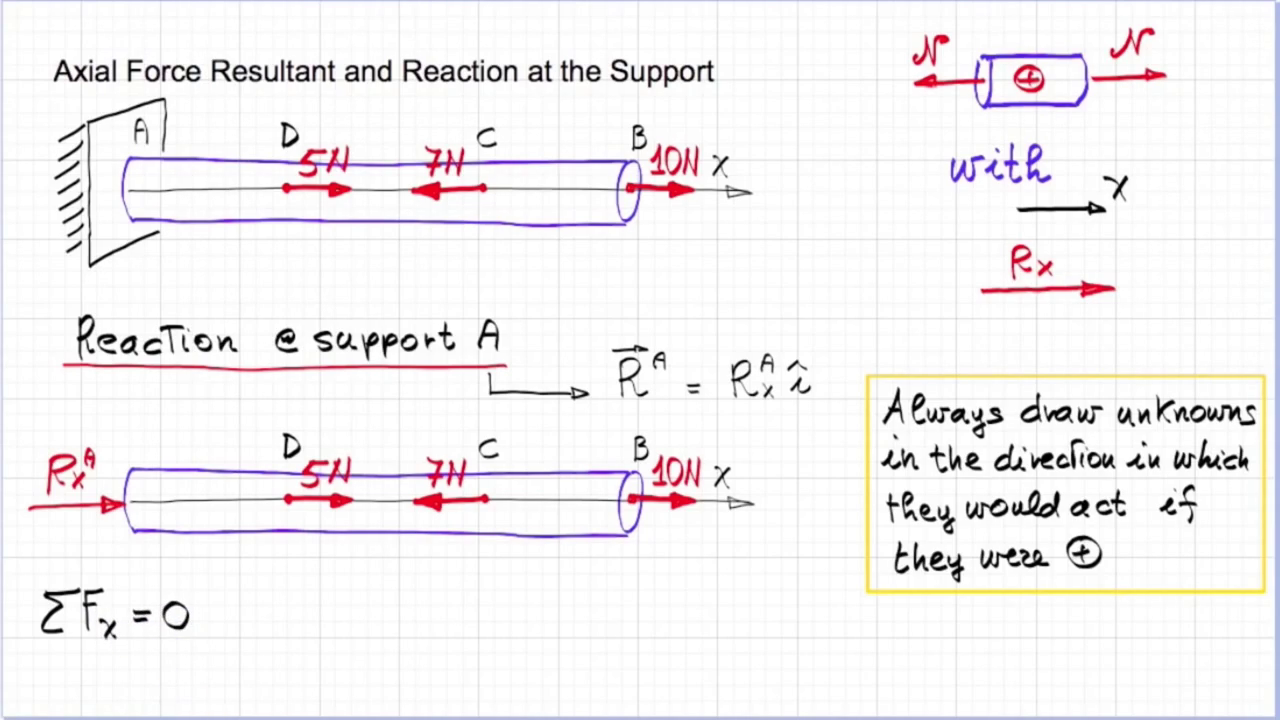 Axial Force Resultant and Reaction at the Support
A
D
5N
7N
C
B
10N
X
N
N
+
with
x
Rx
Reaction @ support A
R^A = Rx^A î
Always draw unknowns
in the direction in which
they would act if
they were ⊕
Rx^A
D
5N
7N
C
B
10N
X
ΣFx = 0